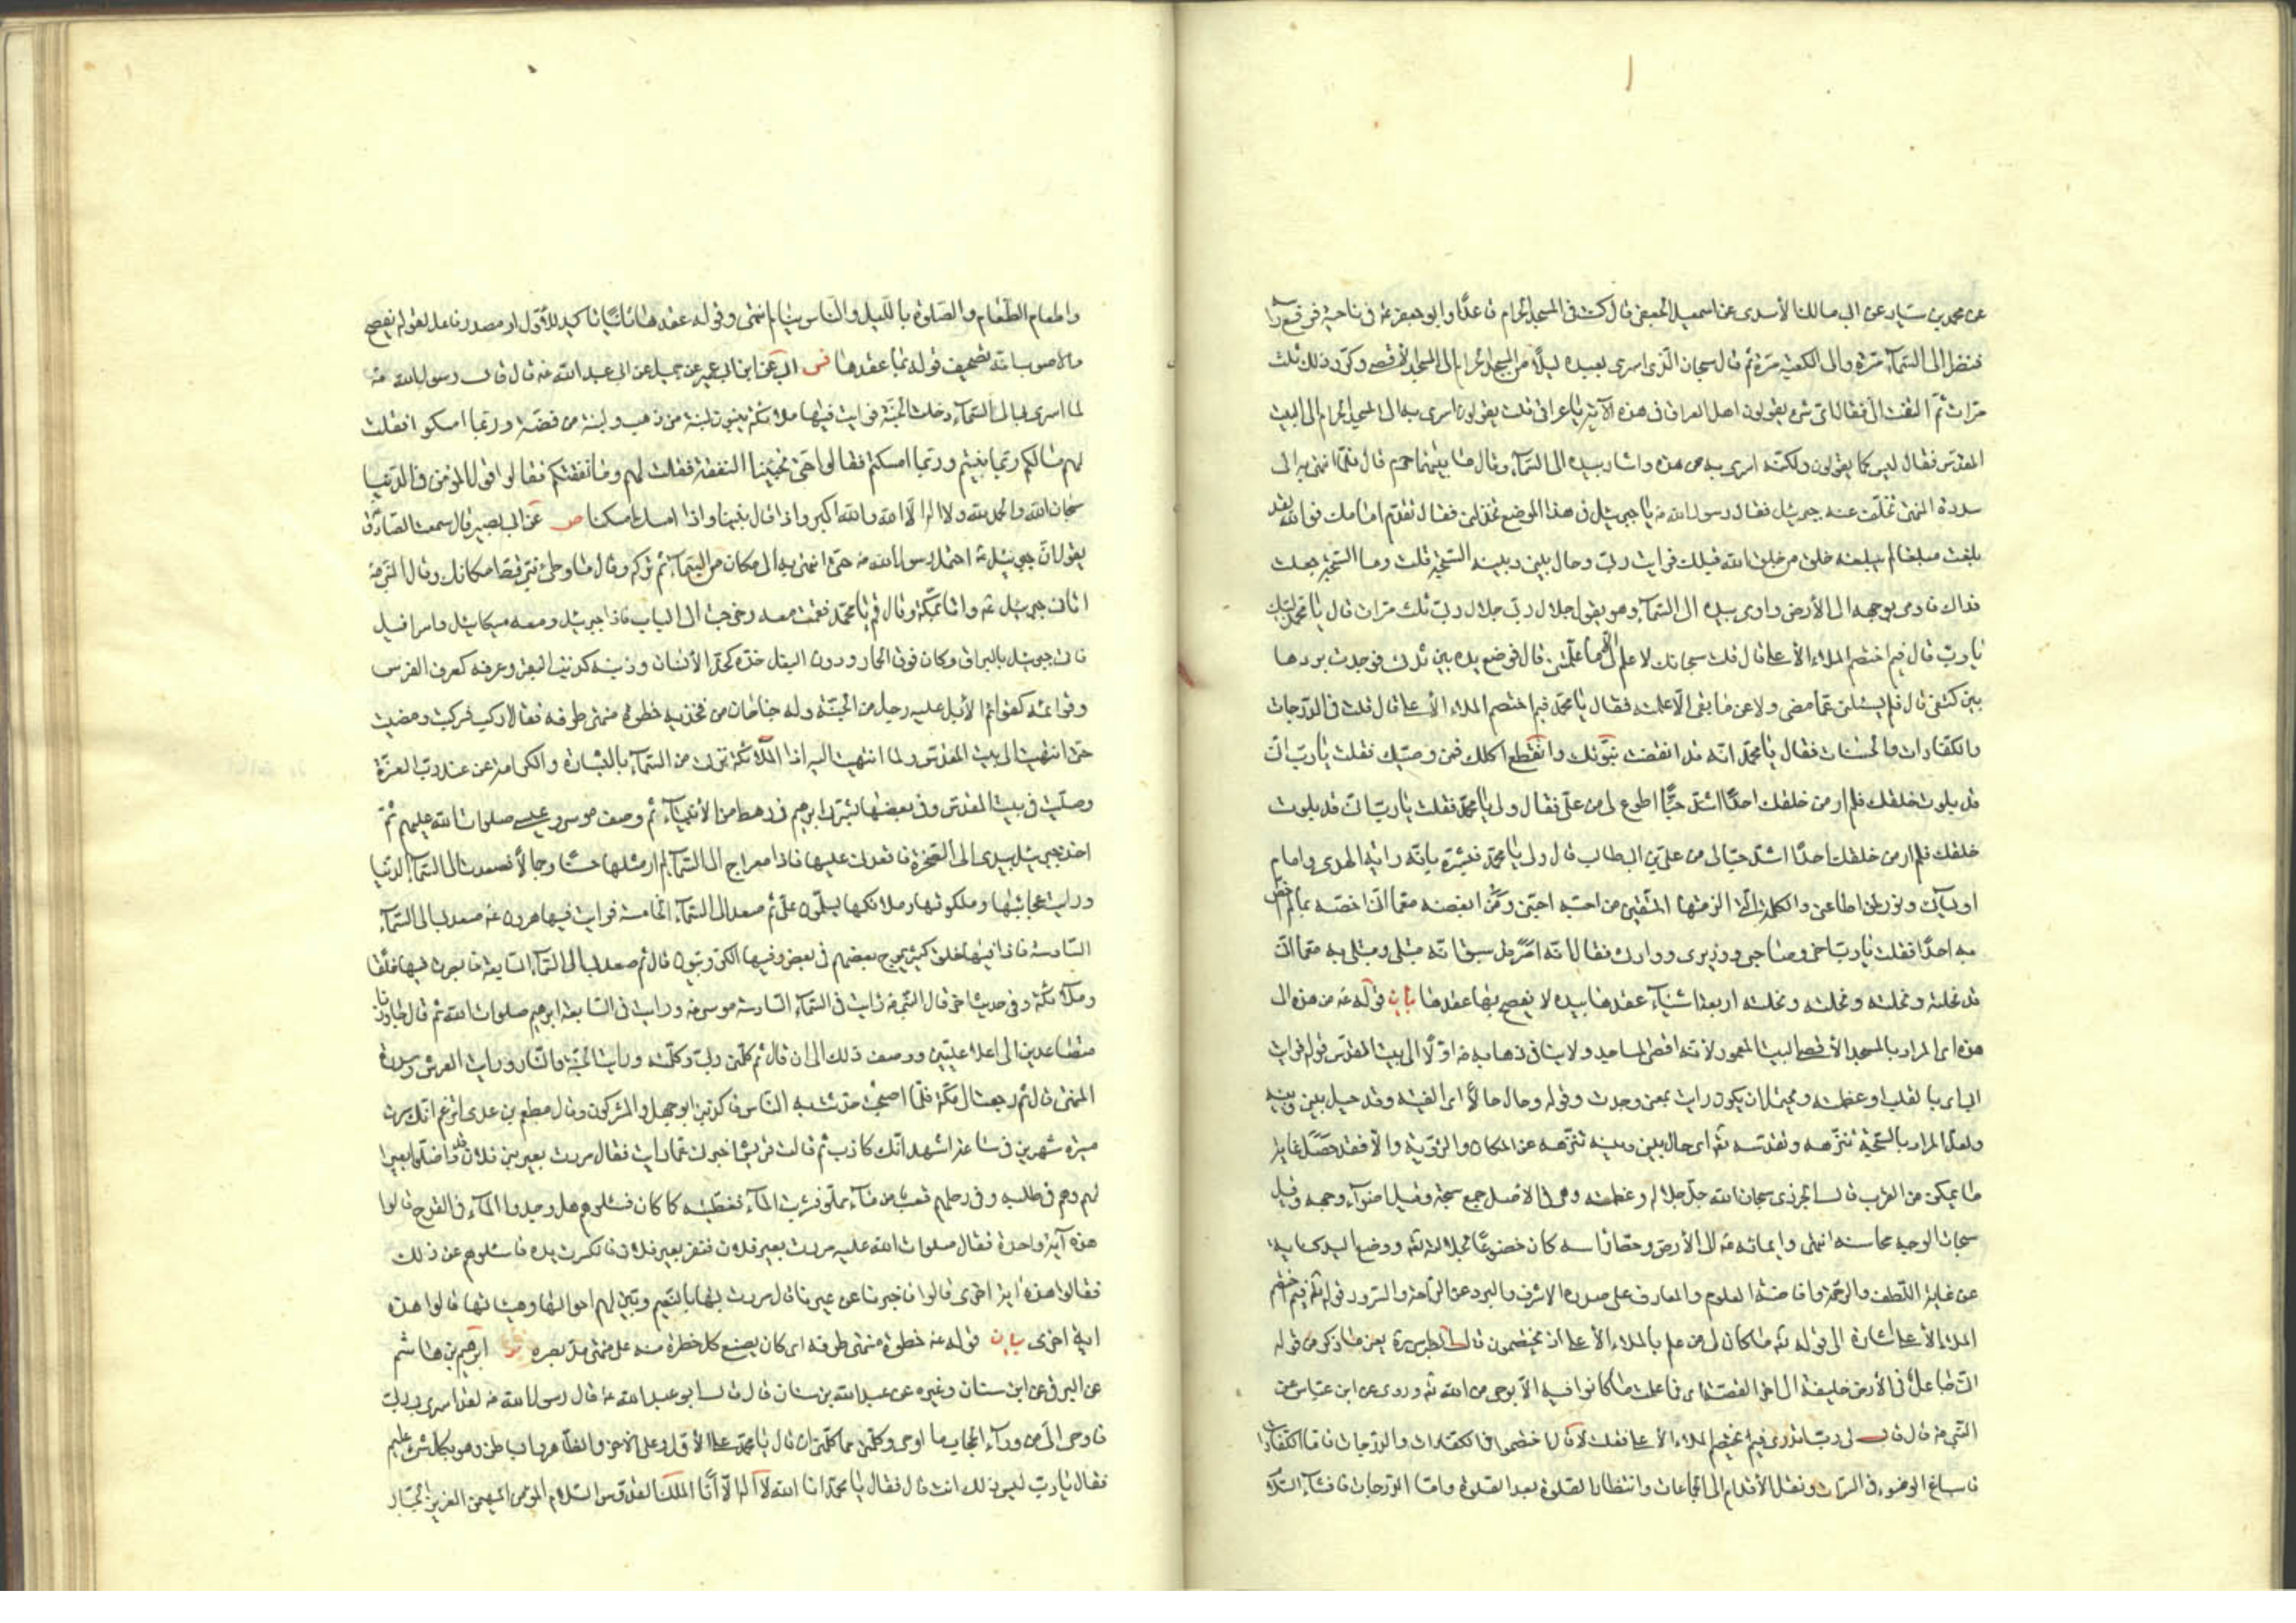 عن محمد بن سيار عن ابى مالك الأسدى عن اسمعيل الجعفى قال كنت فى المسجد الحرام قاعدًا وابو جعفر ع فى ناحية فرفع راسه
فنظر الى السمآء مرّة والى الكعبة مرّة ثم قال سبحان الّذى اسرى بعبده ليلًا من المسجد الحرام الى المسجد الأقصى وكرّر ذلك ثلث
مرّات ثمّ التفت الىّ فقال اىّ شىء يقولون اهل العراق فى هذه الآية يا عراقى قلت يقولون اسرى به من المسجد الحرام الى البيت
المقدّس فقال ليس كما يقولون ولكنّه اسرى به من هذه واشار بيده الى السمآء وقال ما بينهما حرم قال فلمّا انتهى به الى
سدرة المنتهى تخلّف عنه جبرئيل فقال رسول الله ص يا جبرئيل فى هذا الموضع تخذلنى فقال تقدّم امامك فوالله لقد
بلغت مبلغا لم يبلغه خلق من خلق الله قبلك فرايت ربّى وحال بينى وبينه السبحة قلت وما السبحة جعلت
فداك فاومى بوجهه الى الأرض واومى بيده الى السمآء وهو يقول جلال ربّى جلال ربّى ثلث مرّات قال يا محمّد قلت لبّيك
يا ربّ قال فيم اختصم الملاء الأعلى قال قلت سبحانك لا علم لى الّا ما علّمتنى قال فوضع يده بين ثدىّ فوجدت بردها
بين كتفىّ قال فلم يسئلنى عمّا مضى ولا عن ما بقى الّا علمته فقال يا محمّد فيم اختصم الملاء الأعلى قال قلت فى الدّرجات
والكفّارات والحسنات فقال يا محمّد انّه قد انقضت نبوّتك وانقطع اكلك فمن وصيّك فقلت يا ربّ انّى
قد بلوت خلقك فلم ار من خلقك احدًا اشدّ حبًّا اطوع لى من علىّ فقال ولى يا محمّد فقلت يا ربّ انّى قد بلوت
خلقك فلم ار من خلقك احدًا اشدّ حبًّا لى من علىّ بن ابى طالب قال ولى يا محمّد فبشّره بانّه راية الهدى وامام
اوليآئى ونور لمن اطاعنى والكلمة الّتى الزمتها المتّقين من احبّه احبّنى ومن ابغضه ابغضنى مع ما انّى اخصّه بما لم اخصّ
به احدًا فقلت يا ربّ اخى وصاحبى ووزيرى ووارثى فقال انّه امر قد سبق انّه مبتلى ومبتلى به مع ما انّى
قد نحلته ونحلته ونحلته ونحلته اربعة اشيآء عقدها بيده لا يفصح بها عقدها بيان قوله ع من هذه الى
هذه اى المراد بالمسجد الأقصى البيت المعمور لأنه اقصى المساجد ولا ينافى ذهابه ص اوّلًا الى بيت المقدّس قوله فرايت
ربّى اى بالقلب او عظمته ويحتمل ان يكون رايت بمعنى وجدت وقوله وحال حالًا اى الفيته وقد حيل بينى وبينه
ولعلّ المراد بالسبحة تنزّهه وتقدّسه تع اى حال بينى وبينه تنزّهه عن المكان والرّؤية والّا فقد حصل غاية
ما يمكن من القرب قال الجزرى سبحان الله جلّ جلاله وعظمته وهى فى الاصل جمع سبحة وقيل اضوآء وجهه وقيل
سبحات الوجه محاسنه انتهى وايمائه ص الى الأرض وحطّ راسه كان خضوعًا لجلاله تع ووضع اليد كناية
عن غاية اللّطف والرّحمة وافاضة العلوم والمعارف على صدره الاشرف والبرد عن الرّاحة والسّرور قوله تع فيم اختصم
الملاء الأعلى اشارة الى قوله تع ما كان لى من علم بالملاء الأعلى اذ يختصمون قال الطبرسى ره يعنى ما ذكر من قوله
انّى جاعل فى الأرض خليفة الى اخر القصّة اى فما علمت ما كانوا فيه الّا بوحى من الله تع وروى عن ابن عبّاس عن
النّبى ص قال قال لى ربّى اتدرى فيم يختصم الملاء الأعلى فقلت لا قال اختصموا فى الكفّارات والدّرجات فامّا الكفّارات
فاسباغ الوضوء فى السبرات ونقل الأقدام الى الجماعات وانتظار الصّلوة بعد الصّلوة وامّا الدّرجات فافشآء السّلام
واطعام الطّعام والصّلوة باللّيل والنّاس نيام انتهى وقوله عقدها ثانيًا تاكيد للأوّل او مصدر فاعل لقوله يفصح
والاصوب انّه تصحيف قوله بما عقدها فس ابى عن ابن ابى عمير عن جميل عن ابى عبد الله ع قال قال رسول الله ص
لما اسرى بى الى السمآء دخلت الجنّة فرايت فيها ملائكة يبنون لبنة من ذهب ولبنة من فضّة وربّما امسكوا فقلت
لهم ما لكم ربّما بنيتم وربّما امسكتم فقالوا حتّى تجيئنا النفقة فقلت لهم وما نفقتكم فقالوا قول المؤمن فى الدّنيا
سبحان الله والحمد لله ولا اله الّا الله والله اكبر واذا قال بنينا واذا امسك امسكنا ص عن ابى بصير قال سمعت الصّادق ع
يقول انّ جبرئيل ع احتمل رسول الله ص حتّى انتهى به الى مكان من السمآء ثم تركه وقال ما وطئ نبىّ قطّ مكانك وقال النّبى ص
اتانى جبرئيل ع وانا بمكّة وقال قم يا محمّد فقمت معه وخرجت الى الباب فاذا جبرئيل ومعه ميكائيل واسرافيل
فاتى جبرئيل بالبراق وكان فوق الحمار ودون البغل خدّه كخدّ الأنسان وذنبه كذنب البقر وعرفه كعرف الفرس
وقوائمه كقوائم الأبل عليه رحل من الجنّة وله جناحان من فخذيه خطوه منتهى طرفه فقال اركب فركبت ومضيت
حتّى انتهيت الى بيت المقدّس ولما انتهيت اليه اذا الملائكة نزلت من السمآء بالبشارة والكرامة من عند ربّ العزّة
وصلّيت فى بيت المقدّس وفى بعضها بشّر لى ابرهيم فى رهط من الأنبيآء ثم وصف موسى وعيسى صلوات الله عليهم ثمّ
اخذ جبرئيل بيدى الى الصّخرة فاقعدنى عليها فاذا معراج الى السمآء لم ار مثلها حسنًا وجمالًا فصعدت الى السمآء الدّنيا
ورايت عجائبها وملكوتها وملائكتها يسلّمون علىّ ثم صعد بى الى السمآء الخامسة فرايت فيها هرون ع ثم صعد بى الى السمآء
السّادسة فاذا فيها خلق كثير يموج بعضهم فى بعض وفيها الكرّوبيّون قال ثم صعد بى الى السمآء السّابعة فابصرت فيها خلقًا
وملآئكة وفى حديث اخر قال النّبى ص رايت فى السمآء السّادسة موسى ع ورايت فى السّابعة ابرهيم صلوات الله ثم قال جاوزنا
متصاعدين الى اعلا علّيّين ووصف ذلك الى ان قال ثم كلّمنى ربّى وكلّمته ورايت الجنّة والنّار ورايت العرش وسدرة
المنتهى قال ثم رجعت الى مكّة فلمّا اصبحت حدّثت به النّاس فاكذبنى ابو جهل والمشركون وقال مطعم بن عدى اتزعم انّك سرت
مسيرة شهرين فى ساعة اشهد انّك كاذب ثم قالت قريش اخبرنا عمّا رايت فقال مررت بعير بنى فلان وقد اضلّوا بعيرا
لهم وهم فى طلبه وفى رحلهم قعب من مآء مملو فشربت المآء فغطّيته كما كان فسئلوهم هل وجدوا المآء فى القدح قالوا
هذه آية واحدة فقال صلوات الله عليه مررت بعير فلان فنفر بعير فلان فانكسرت يده فاسئلوهم عن ذلك
فقالوا هذه اية اخرى قالوا فاخبرنا عن عيرنا قال مررت بها بالتنعيم وبيّن لهم احوالها وهيئاتها قالوا هذه
اية اخرى بيان قوله ع خطوه منتهى طرفه اى كان يضع كلّ خطوة منه على منتهى مدّ بصره ابرهيم بن هاشم
عن البرقى عن ابن سنان وغيره عن عبد الله بن سنان قال قال ابو عبد الله ع قال رسول الله ص لقد اسرى بى ربّى
فاوحى الىّ من ورآء الحجاب ما اوحى وكلّمنى ممّا كلّمنى ان قال يا محمّد على الأوّل وعلى الآخر والظّاهر والباطن وهو بكلّ شىء عليم
فقال يا ربّ اليس ذلك انت قال فقال يا محمّد انا الله لا اله الّا انا الملك القدّوس السّلام المؤمن المهيمن العزيز الجبّار